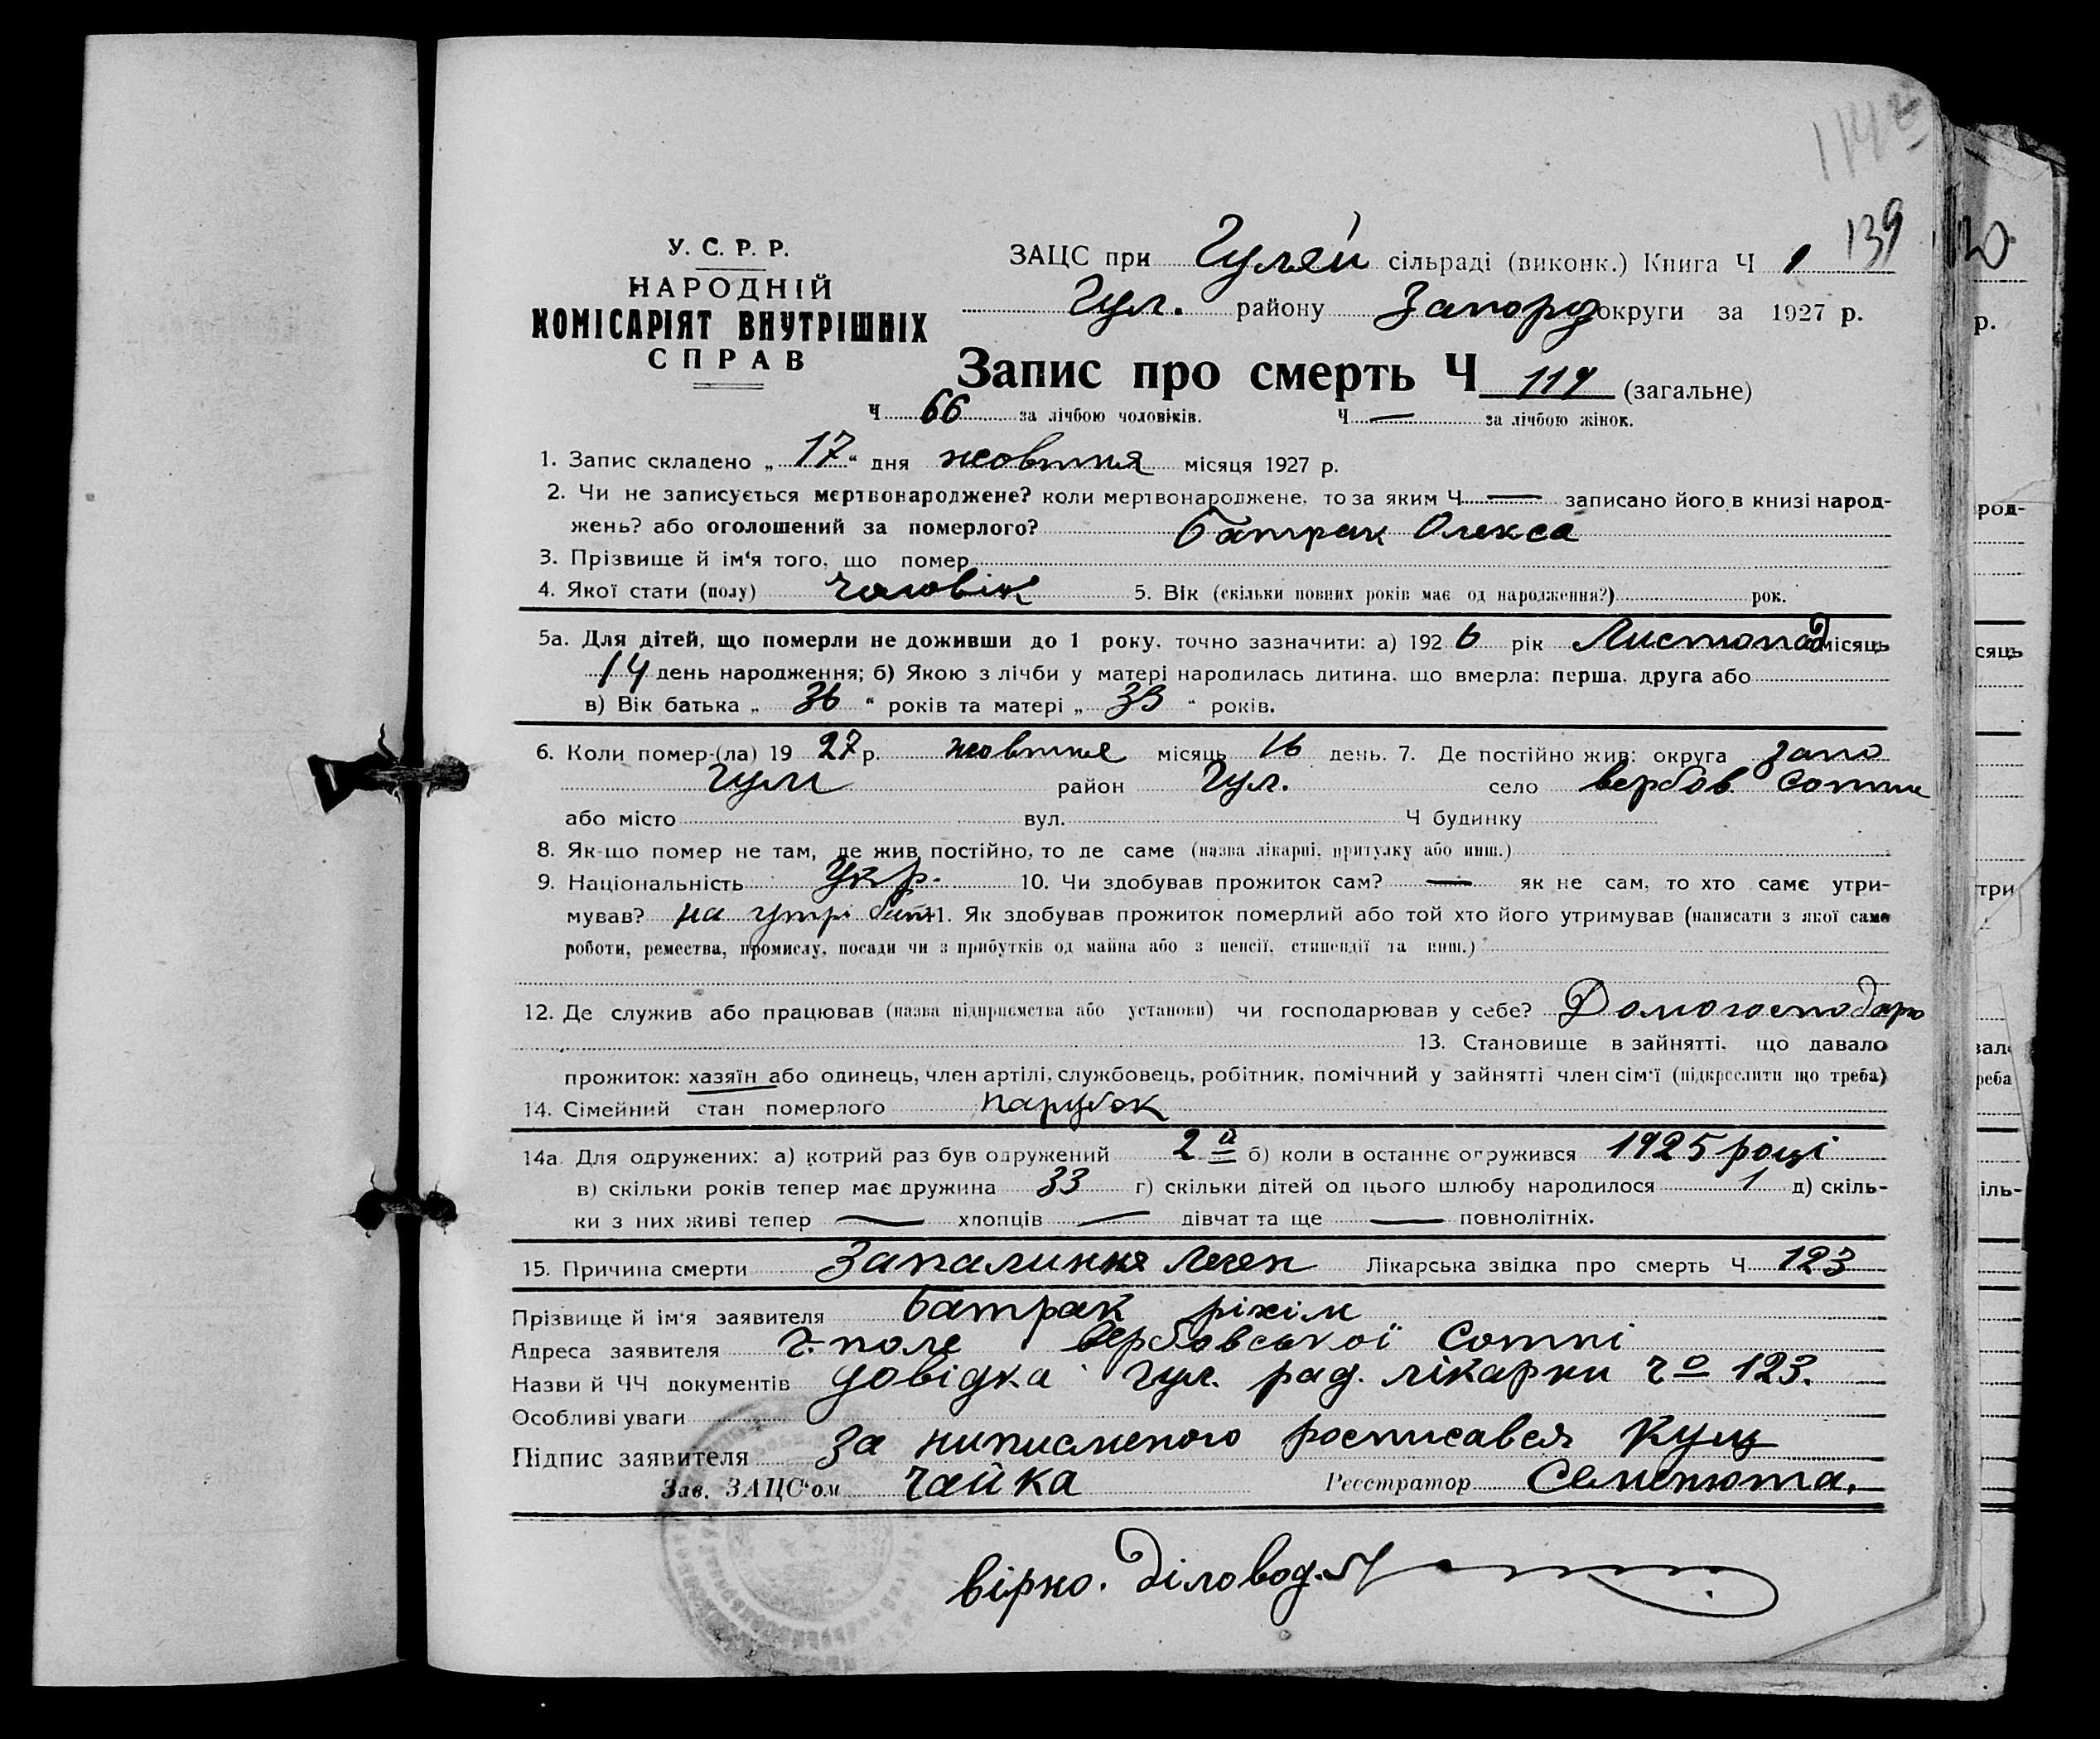 139
У. С. Р. Р.
НАРОДНІЙ
КОМІСАРІЯТ ВНУТРІШНІХ
СПРАВ
ЗАЦС при Гуляй сільраді (виконк.) Книга Ч 1
Гул. району Запорз округи за 1927 р.
Запис про смерть Ч 114 (загальне)
Ч 66 за лічбою чоловіків. Ч — за лічбою жінок.
1. Запис складено „ 17 “ дня жовтня місяця 1927 р.
2. Чи не записується мертвонароджене? коли мертвонароджене, то за яким Ч — записано його в книзі народ-
жень? або оголошений за померлого? Батрак Олекса
3. Прізвище й ім‘я того, що помер
4. Якої стати (полу) чоловік 5. Вік (скільки повних років має од народження?) рок.
5а. Для дітей, що померли не доживши до 1 року, точно зазначити: а) 1926 рік Листопад місяць
14 день народження; б) Якою з лічби у матері народилась дитина, що вмерла: перша, друга або
в) Вік батька „ 36 “ років та матері „ 33 “ років.
6. Коли помер-(ла) 1927 р. жовтня місяць 16 день. 7. Де постійно жив: округа запо
гул район Гул. село вербов сотни
або місто вул. Ч будинку
8. Як-що помер не там, де жив постійно, то де саме (назва лікарні, притулку або инш.)
9. Національність Укр. 10. Чи здобував прожиток сам? — як не сам, то хто саме утри-
мував? на утрі 11. Як здобував прожиток померлий або той хто його утримував (написати з якої саме
роботи, ремества, промислу, посади чи з прибутків од майна або з пенсії, стипендії та инш.)
12. Де служив або працював (назва підприємства або установи) чи господарював у себе? Домогосподарю
13. Становище в зайнятті, що давало
прожиток: хазяїн або одинець, член артілі, службовець, робітник, помічний у зайнятті член сім‘ї (підкреслити що треба)
14. Сімейний стан померлого парубок
14а. Для одружених: а) котрий раз був одружений 2й б) коли в останнє одружився 1925 році
в) скільки років тепер має дружина 33 г) скільки дітей од цього шлюбу народилося 1 д) скіль-
ки з них живі тепер — хлопців — дівчат та ще — повнолітніх.
15. Причина смерти Запалиння леген Лікарська звідка про смерть Ч 123
Прізвище й ім‘я заявителя Батрак
Адреса заявителя г. поле вербовської сотні
Назви й ЧЧ документів довідка гул. рад. лікарки чо 123.
Особливі уваги
Підпис заявителя За ниписменого росписався Кущ
Зав. ЗАЦС‘ом Чайка Реєстратор Семенюта.
вірно. Діловод.